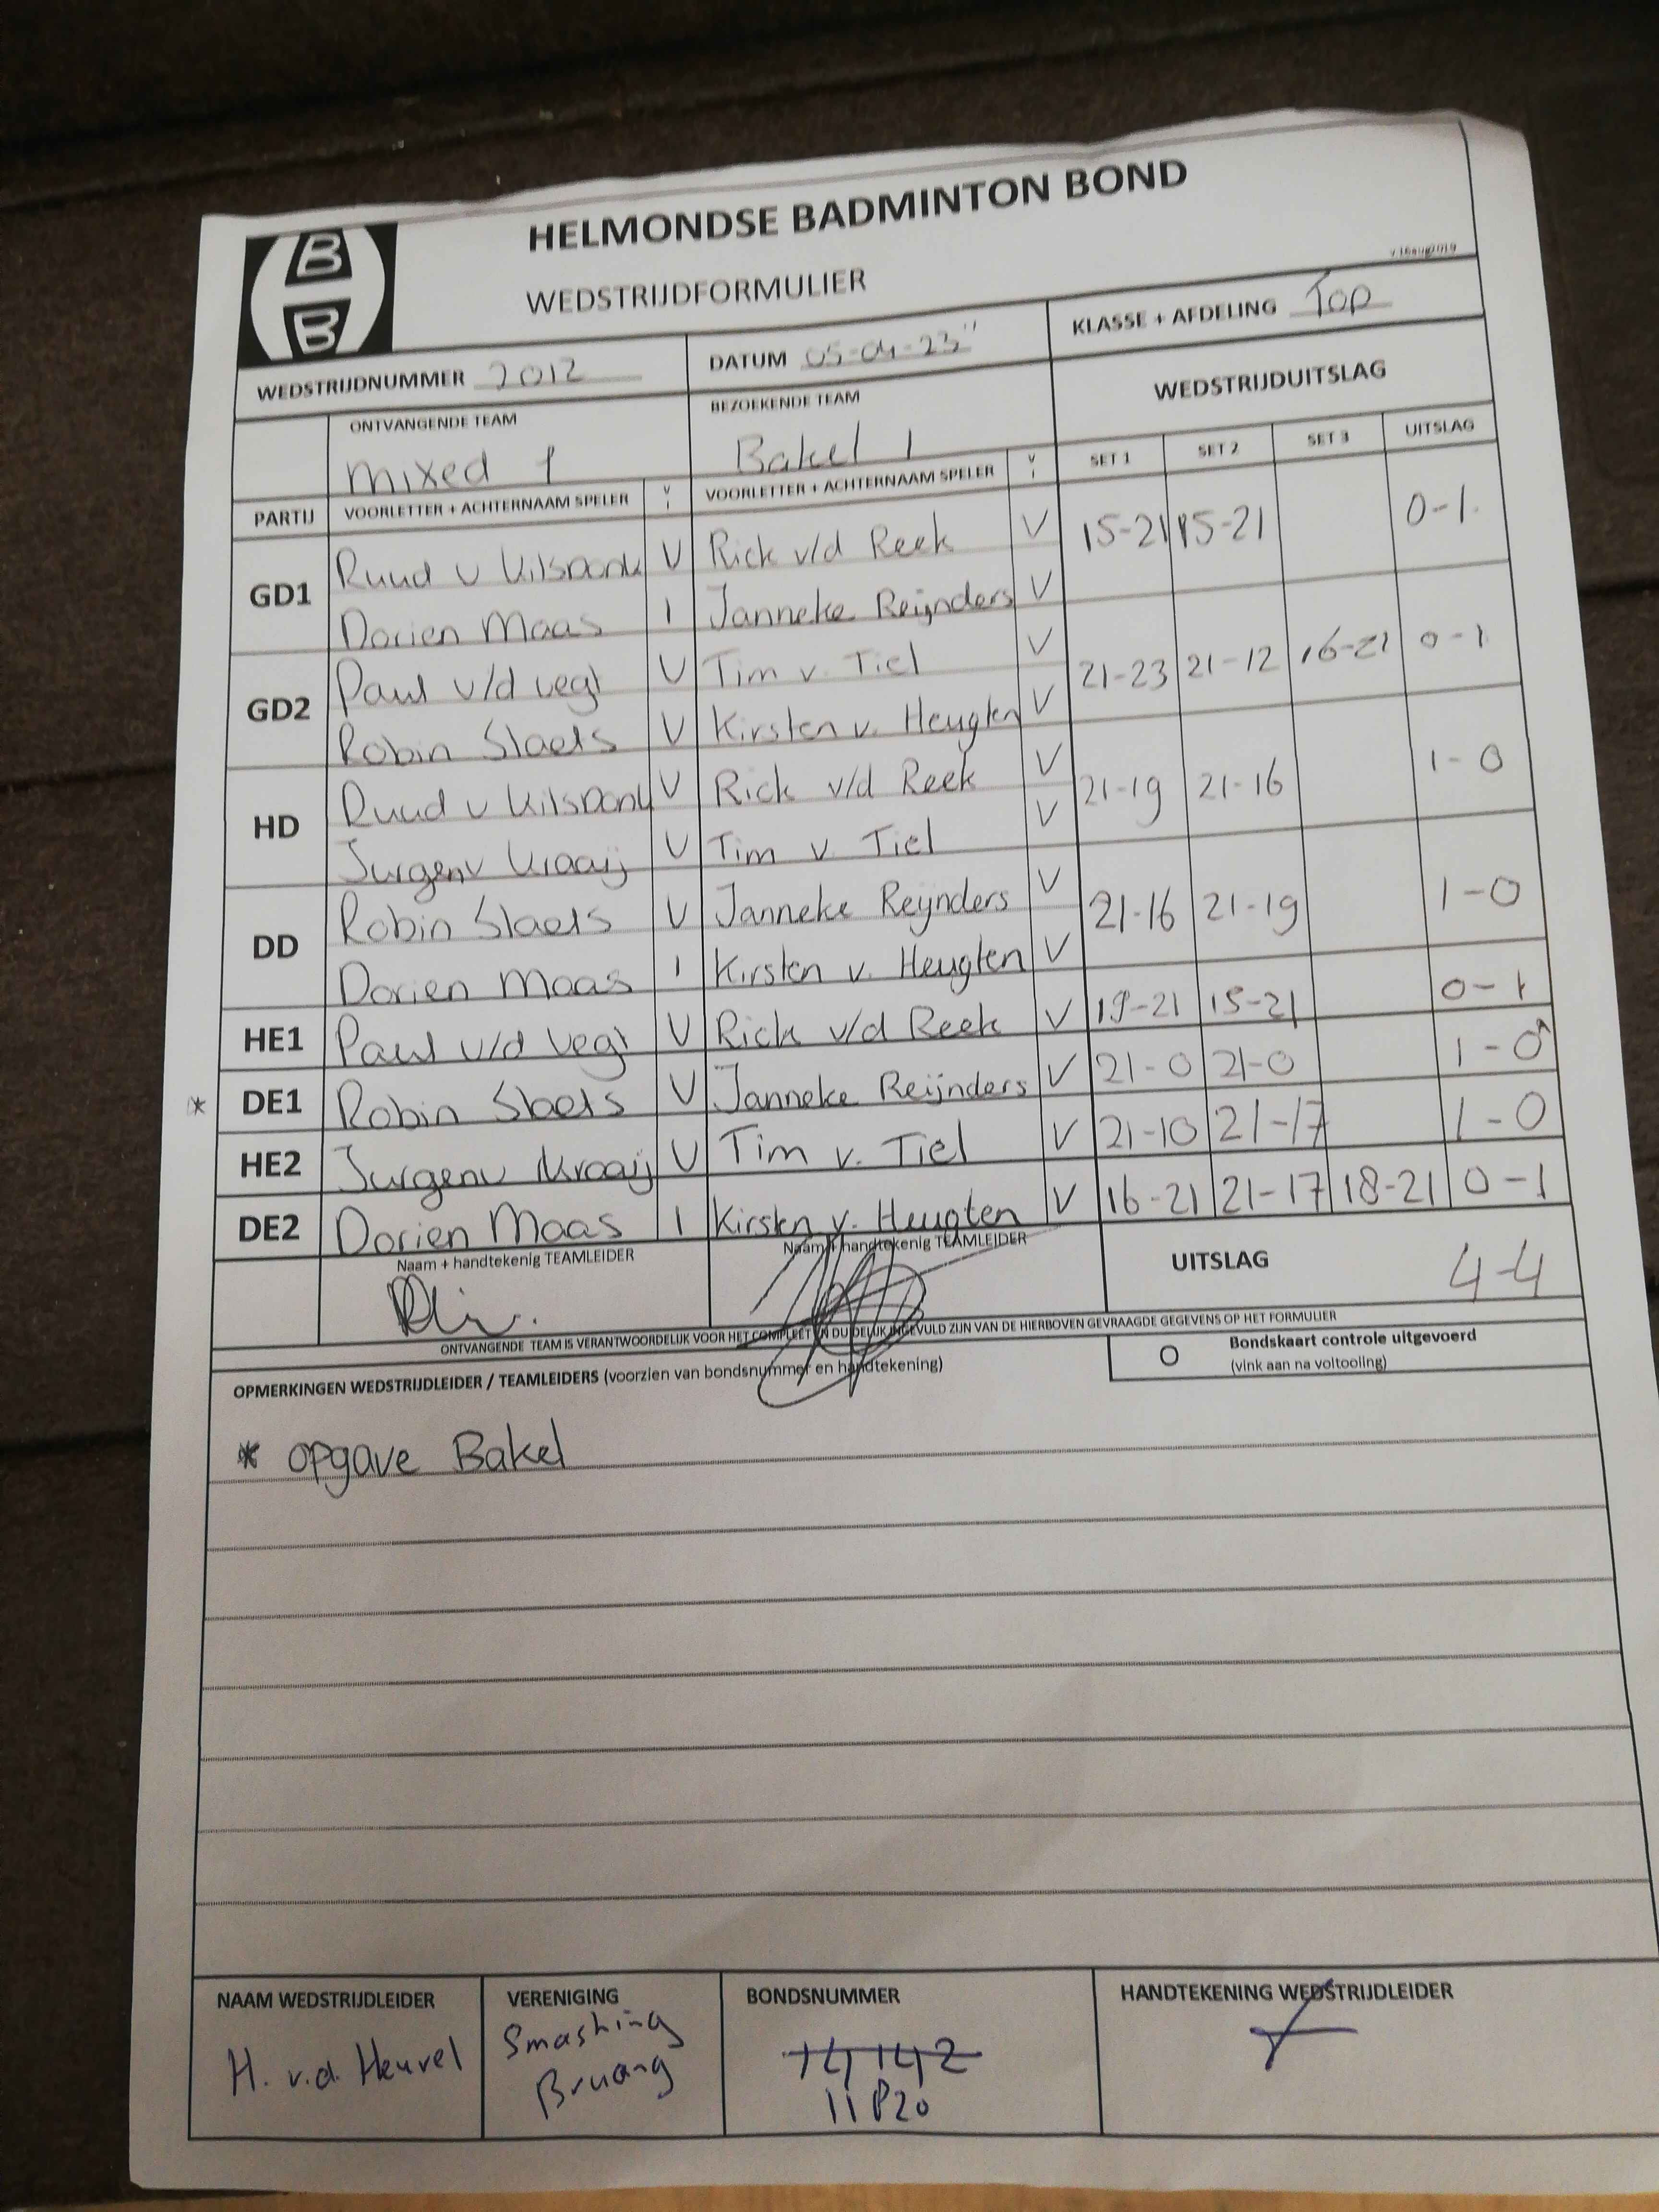 B
B
HELMONDSE BADMINTON BOND
WEDSTRIJDFORMULIER
v.16aug2019
WEDSTRIJDNUMMER 2012 DATUM 05-04-23 KLASSE + AFDELING Top
ONTVANGENDE TEAM BEZOEKENDE TEAM WEDSTRIJDUITSLAG
mixed 1 Bakel 1 SET 1 SET 2 SET 3 UITSLAG
PARTIJ VOORLETTER + ACHTERNAAM SPELER V I VOORLETTER + ACHTERNAAM SPELER V I
GD1 Ruud v Kilsdonk V Rick v/d Reek V 15-21 15-21 0-1
Dorien Maas I Janneke Reijnders V
GD2 Paul v/d Vegt V Tim v. Tiel V 21-23 21-12 16-21 0-1
Robin Slaets V Kirsten v. Heugten V
HD Ruud v Kilsdonk V Rick v/d Reek V 21-19 21-16 1-0
Jurgen v Kraaij V Tim v. Tiel V
DD Robin Slaets V Janneke Reijnders V 21-16 21-19 1-0
Dorien Maas I Kirsten v. Heugten V
HE1 Paul v/d Vegt V Rick v/d Reek V 19-21 15-21 0-1
* DE1 Robin Slaets V Janneke Reijnders V 21-0 21-0 1-0*
HE2 Jurgen v Kraaij V Tim v. Tiel V 21-10 21-17 1-0
DE2 Dorien Maas I Kirsten v. Heugten V 16-21 21-17 18-21 0-1
Naam + handtekenig TEAMLEIDER Naam + handtekenig TEAMLEIDER
UITSLAG 4-4
ONTVANGENDE TEAM IS VERANTWOORDELIJK VOOR HET COMPLEET EN DUIDELIJK INGEVULD ZIJN VAN DE HIERBOVEN GEVRAAGDE GEGEVENS OP HET FORMULIER
OPMERKINGEN WEDSTRIJDLEIDER / TEAMLEIDERS (voorzien van bondsnummer en handtekening)
O Bondskaart controle uitgevoerd
(vink aan na voltooiing)
* opgave Bakel
NAAM WEDSTRIJDLEIDER VERENIGING BONDSNUMMER HANDTEKENING WEDSTRIJDLEIDER
H. v.d. Heuvel Smashing
Bruang
14142
11820